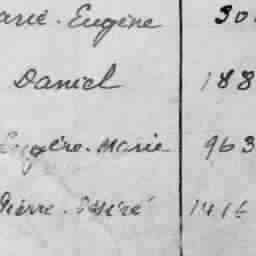 arie. Eugène 30
Daniel 188
Eugène. Marie 963
Pierre. Désiré 1416